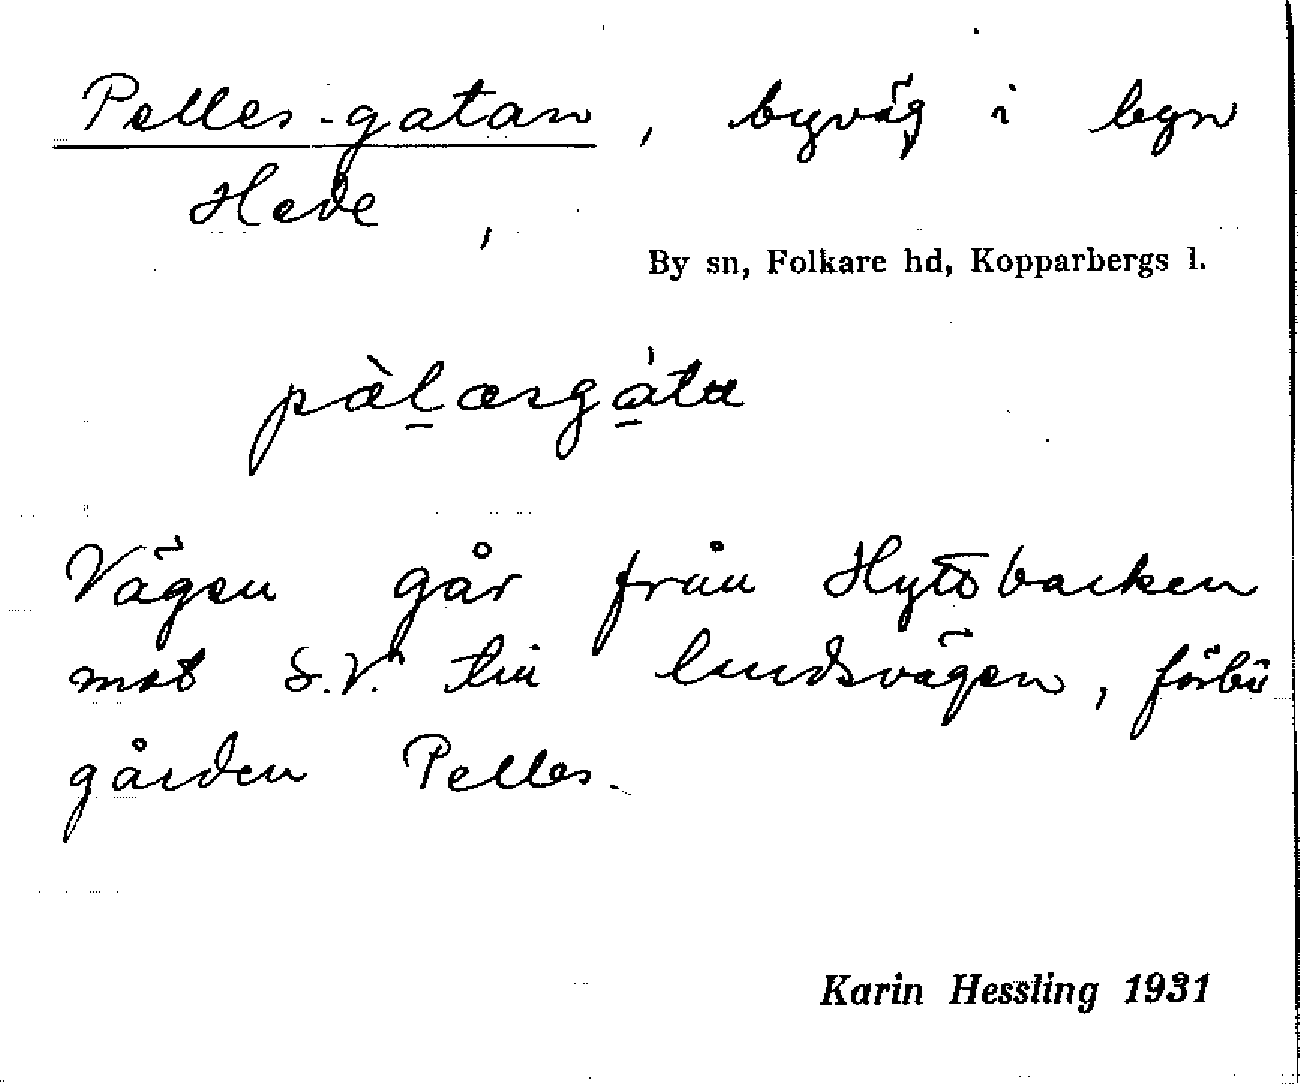 Pelles-gatan, byväg i byn
Hede,
By sn, Folkare hd, Kopparbergs l.
pàlæsgáta
Vägen går från Hyttbacken
mot S.V. till landsvägen, förbi
gården Pelles.
Karin Hessling 1931